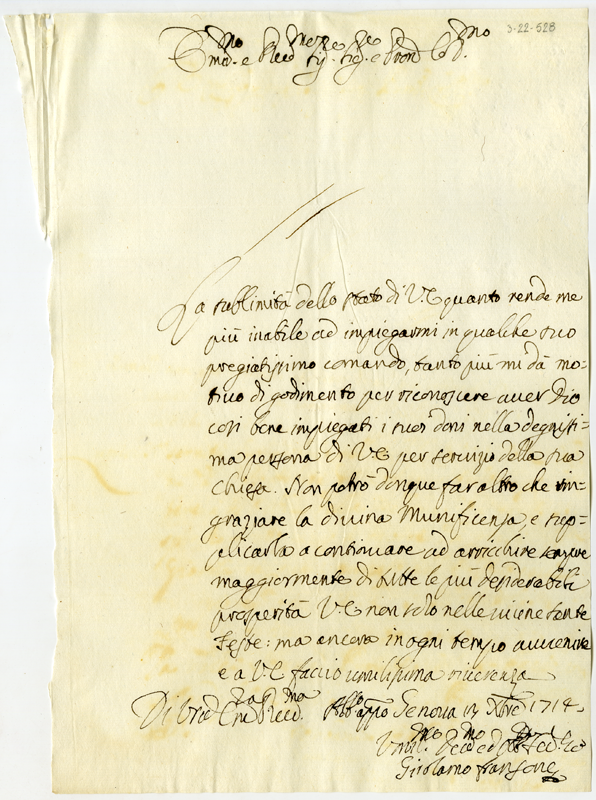 3-22-528
Em.mo e Rev.mo Sig. Sig. e Pron Col.mo
La sublimità dello stato di V.E quanto rende me
più inabile ad impiegarmi in qualche suo
pregiatissimo comando, tanto più mi dà mo=
tivo di godimento per riconoscere aver Dio
così bene impiegati i suoi doni nella degnissi=
ma persona di V.E per servizio della sua
Chiesa. Non potrò donque far altro che rin=
graziare la divina Munificenza, e sup=
plicarla a continuare ad arricchire sempre
maggiormente di tutte le più desiderabili
prosperità V.E non solo nelle vicine sante
Feste: ma ancora in ogni tempo avvenire
e a V.E faccio umilissima riverenza
Di V.ra Em.za Rev.ma Genova 1714
Umil.mo
Girolamo Fransone